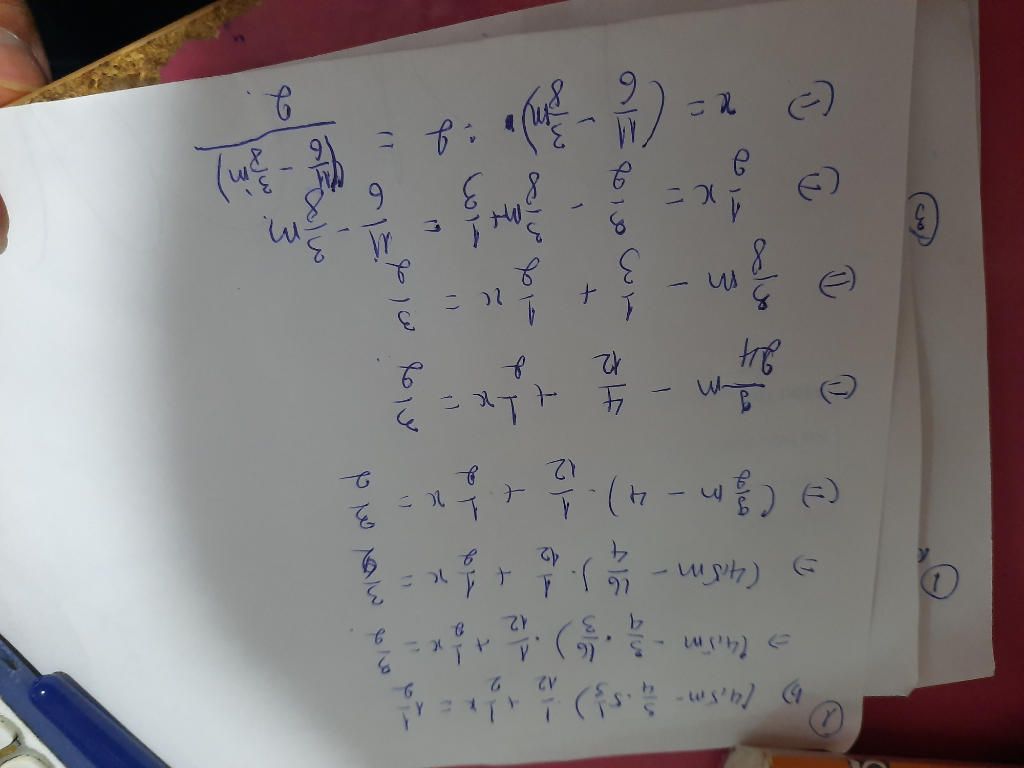 ② b) (4,5m - 3/4 · 5 1/3) · 1/12 + 1/2 x = 1 1/2
=> (4,5m - 3/4 · 16/3) · 1/12 + 1/2 x = 3/2
=> (4,5m - 16/4) · 1/12 + 1/2 x = 3/2
(=) (9/2 m - 4) · 1/12 + 1/2 x = 3/2
(=) 9/24 m - 4/12 + 1/2 x = 3/2
(=) 3/8 m - 1/3 + 1/2 x = 3/2
(=) 1/2 x = 3/2 - 3/8 m + 1/3 = 11/6 - 3/8 m
(=) x = (11/6 - 3/8 m) : 2 = (11/6 - 3/8 m)/2
①
③